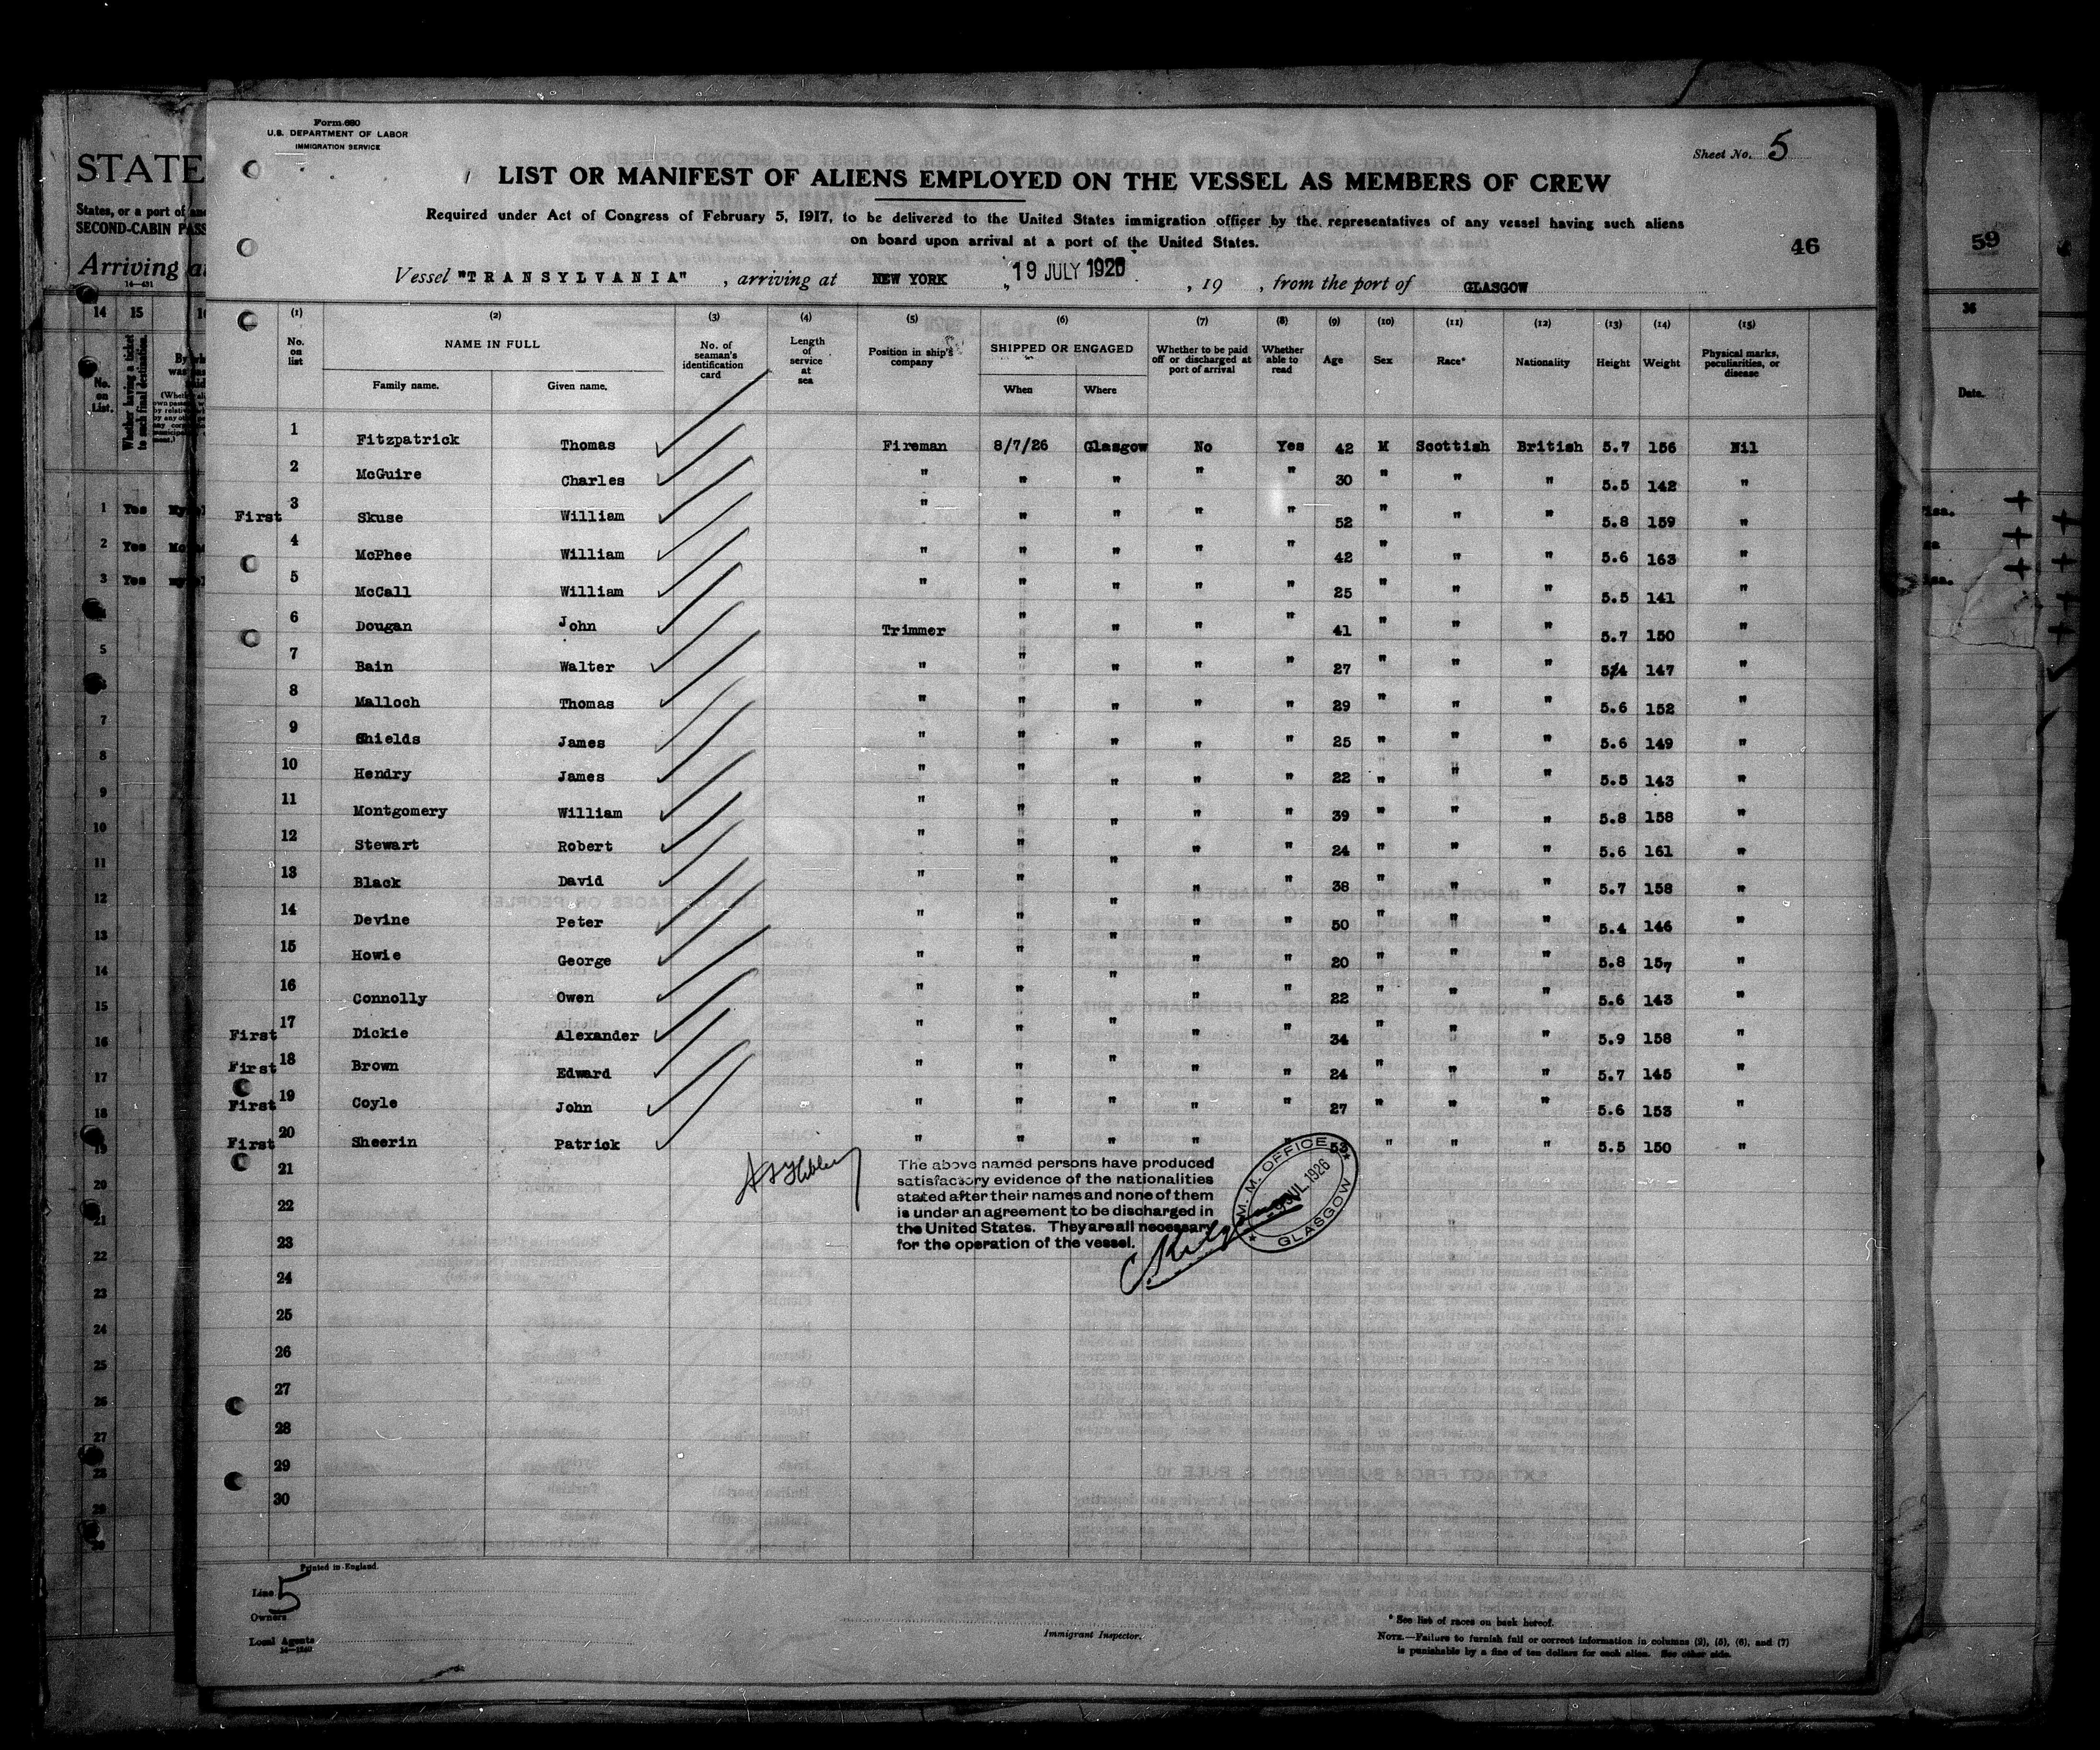 Form 680
U.S. DEPARTMENT OF LABOR
IMMIGRATION SERVICE
Sheet No. 5
LIST OR MANIFEST OF ALIENS EMPLOYED ON THE VESSEL AS MEMBERS OF CREW
Required under Act of Congress of February 5, 1917, to be delivered to the United States immigration officer by the representatives of any vessel having such aliens
on board upon arrival at a port of the United States.
46
Vessel "TRANSYLVANIA", arriving at NEW YORK, 19 JULY 1926, 19 , from the port of GLASGOW
(1) (2) (3) (4) (5) (6) (7) (8) (9) (10) (11) (12) (13) (14) (15)
No. on list NAME IN FULL Family name. Given name. No. of seaman's identification card Length of service at sea Position in ship's company SHIPPED OR ENGAGED When Where Whether to be paid off or discharged at port of arrival Whether able to read Age Sex Race* Nationality Height Weight Physical marks, peculiarities, or disease
1 Fitzpatrick Thomas Fireman 8/7/26 Glasgow No Yes 42 M Scottish British 5.7 156 Nil
2 McGuire Charles " " " " " 30 " " " 5.5 142 "
First 3 Skuse William " " " " " 52 " " " 5.8 159 "
4 McPhee William " " " " " 42 " " " 5.6 163 "
5 McCall William " " " " " 25 " " " 5.5 141 "
6 Dougan John Trimmer " " " " 41 " " " 5.7 150 "
7 Bain Walter " " " " " 27 " " " 5/4 147 "
8 Malloch Thomas " " " " " 29 " " " 5.6 152 "
9 Shields James " " " " " 25 " " " 5.6 149 "
10 Hendry James " " " " " 22 " " " 5.5 143 "
11 Montgomery William " " " " " 39 " " " 5.8 158 "
12 Stewart Robert " " " " " 24 " " " 5.6 161 "
13 Black David " " " " " 38 " " " 5.7 158 "
14 Devine Peter " " " " " 50 " " " 5.4 146 "
15 Howie George " " " " " 20 " " " 5.8 157 "
16 Connolly Owen " " " " " 22 " " " 5.6 143 "
First 17 Dickie Alexander " " " " " 34 " " " 5.9 158 "
First 18 Brown Edward " " " " " 24 " " " 5.7 145 "
First 19 Coyle John " " " " " 27 " " " 5.6 153 "
First 20 Sheerin Patrick " " " " " 53 " " " 5.5 150 "
21
22
23
24
25
26
27
28
29
30
The above named persons have produced
satisfactory evidence of the nationalities
stated after their names and none of them
is under an agreement to be discharged in
the United States. They are all necessary
for the operation of the vessel.
M. M. OFFICE
JUL 1926
GLASGOW
Printed in England.
Line 5
Owners
Local Agents
Immigrant Inspector.
* See list of races on back hereof.
NOTE.—Failure to furnish full or correct information in columns (2), (5), (6), and (7)
is punishable by a fine of ten dollars for each alien. See other side.
STATE
States, or a port of
SECOND-CABIN
Arriving
14 15
No. on List.
Whether having a ticket to such final destination.
1 Yes
2 Yes
3 Yes
59
Date.